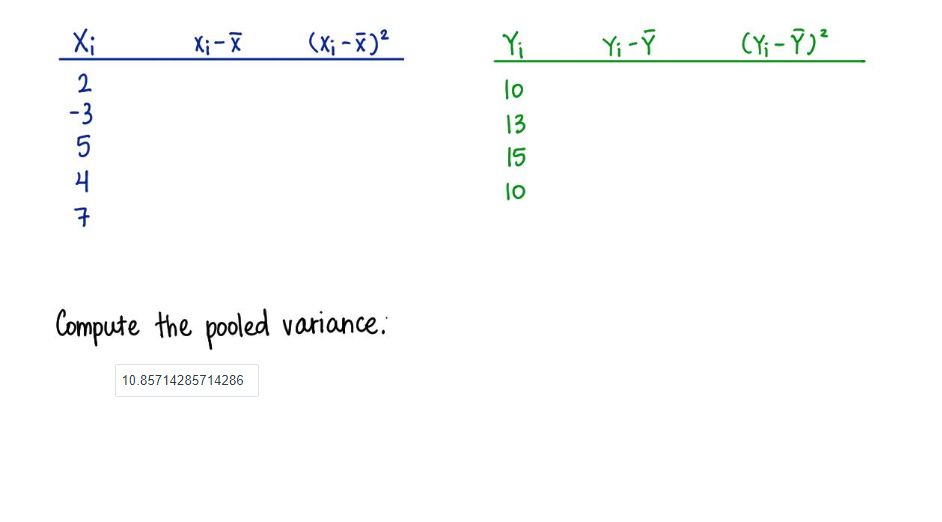 Xi   Xi - X̄   (Xi - X̄)²
2
-3
5
4
7
Yi   Yi - Ȳ   (Yi - Ȳ)²
10
13
15
10
Compute the pooled variance:
10.85714285714286